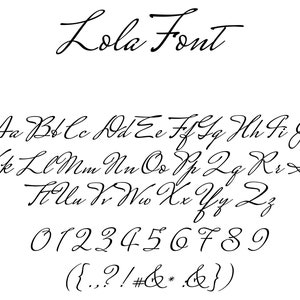 Lola Font
Aa Bb Cc Dd Ee Ff Gg Hh Ii
Kk Ll Mm Nn Oo Pp Qq Rr
Tt Uu Vv Ww Xx Yy Zz
0 1 2 3 4 5 6 7 8 9
({.,?!#&*.&})